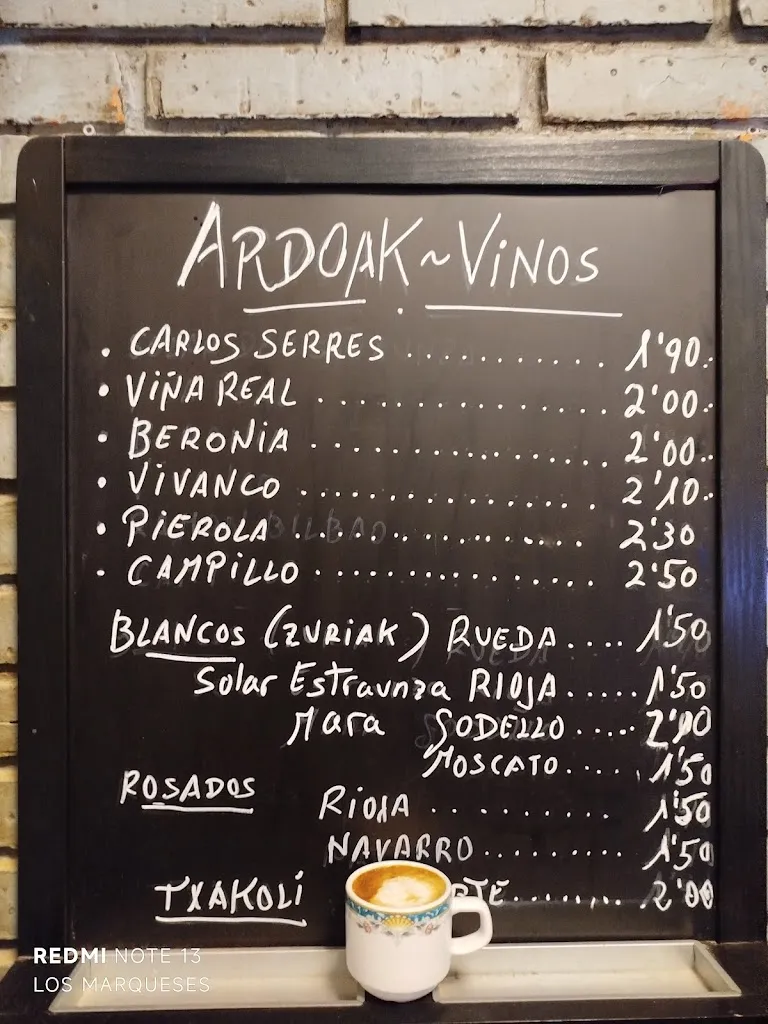 ARDOAK ~ VINOS
• CARLOS SERRES ........... 1'90
• VIÑA REAL ............... 2'00
• BERONIA ................ 2'00
• VIVANCO ................ 2'10
• PIEROLA ................ 2'30
• CAMPILLO ............... 2'50
BLANCOS (ZURIAK) RUEDA .... 1'50
Solar Estraunza RIOJA ..... 1'50
Mara GODELLO ..... 2'00
MOSCATO ..... 1'50
ROSADOS
RIOJA ......... 1'50
NAVARRO ......... 1'50
TXAKOLÍ ........ 2'00
REDMI NOTE 13
LOS MARQUESES